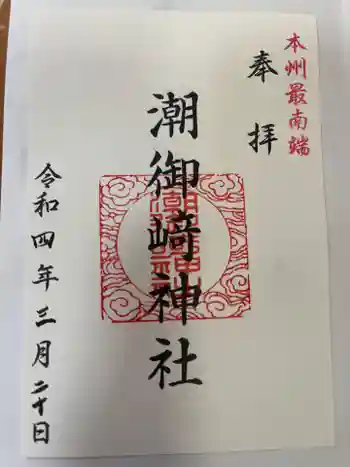 本州最南端
奉拝
潮御崎神社
令和四年三月二十日